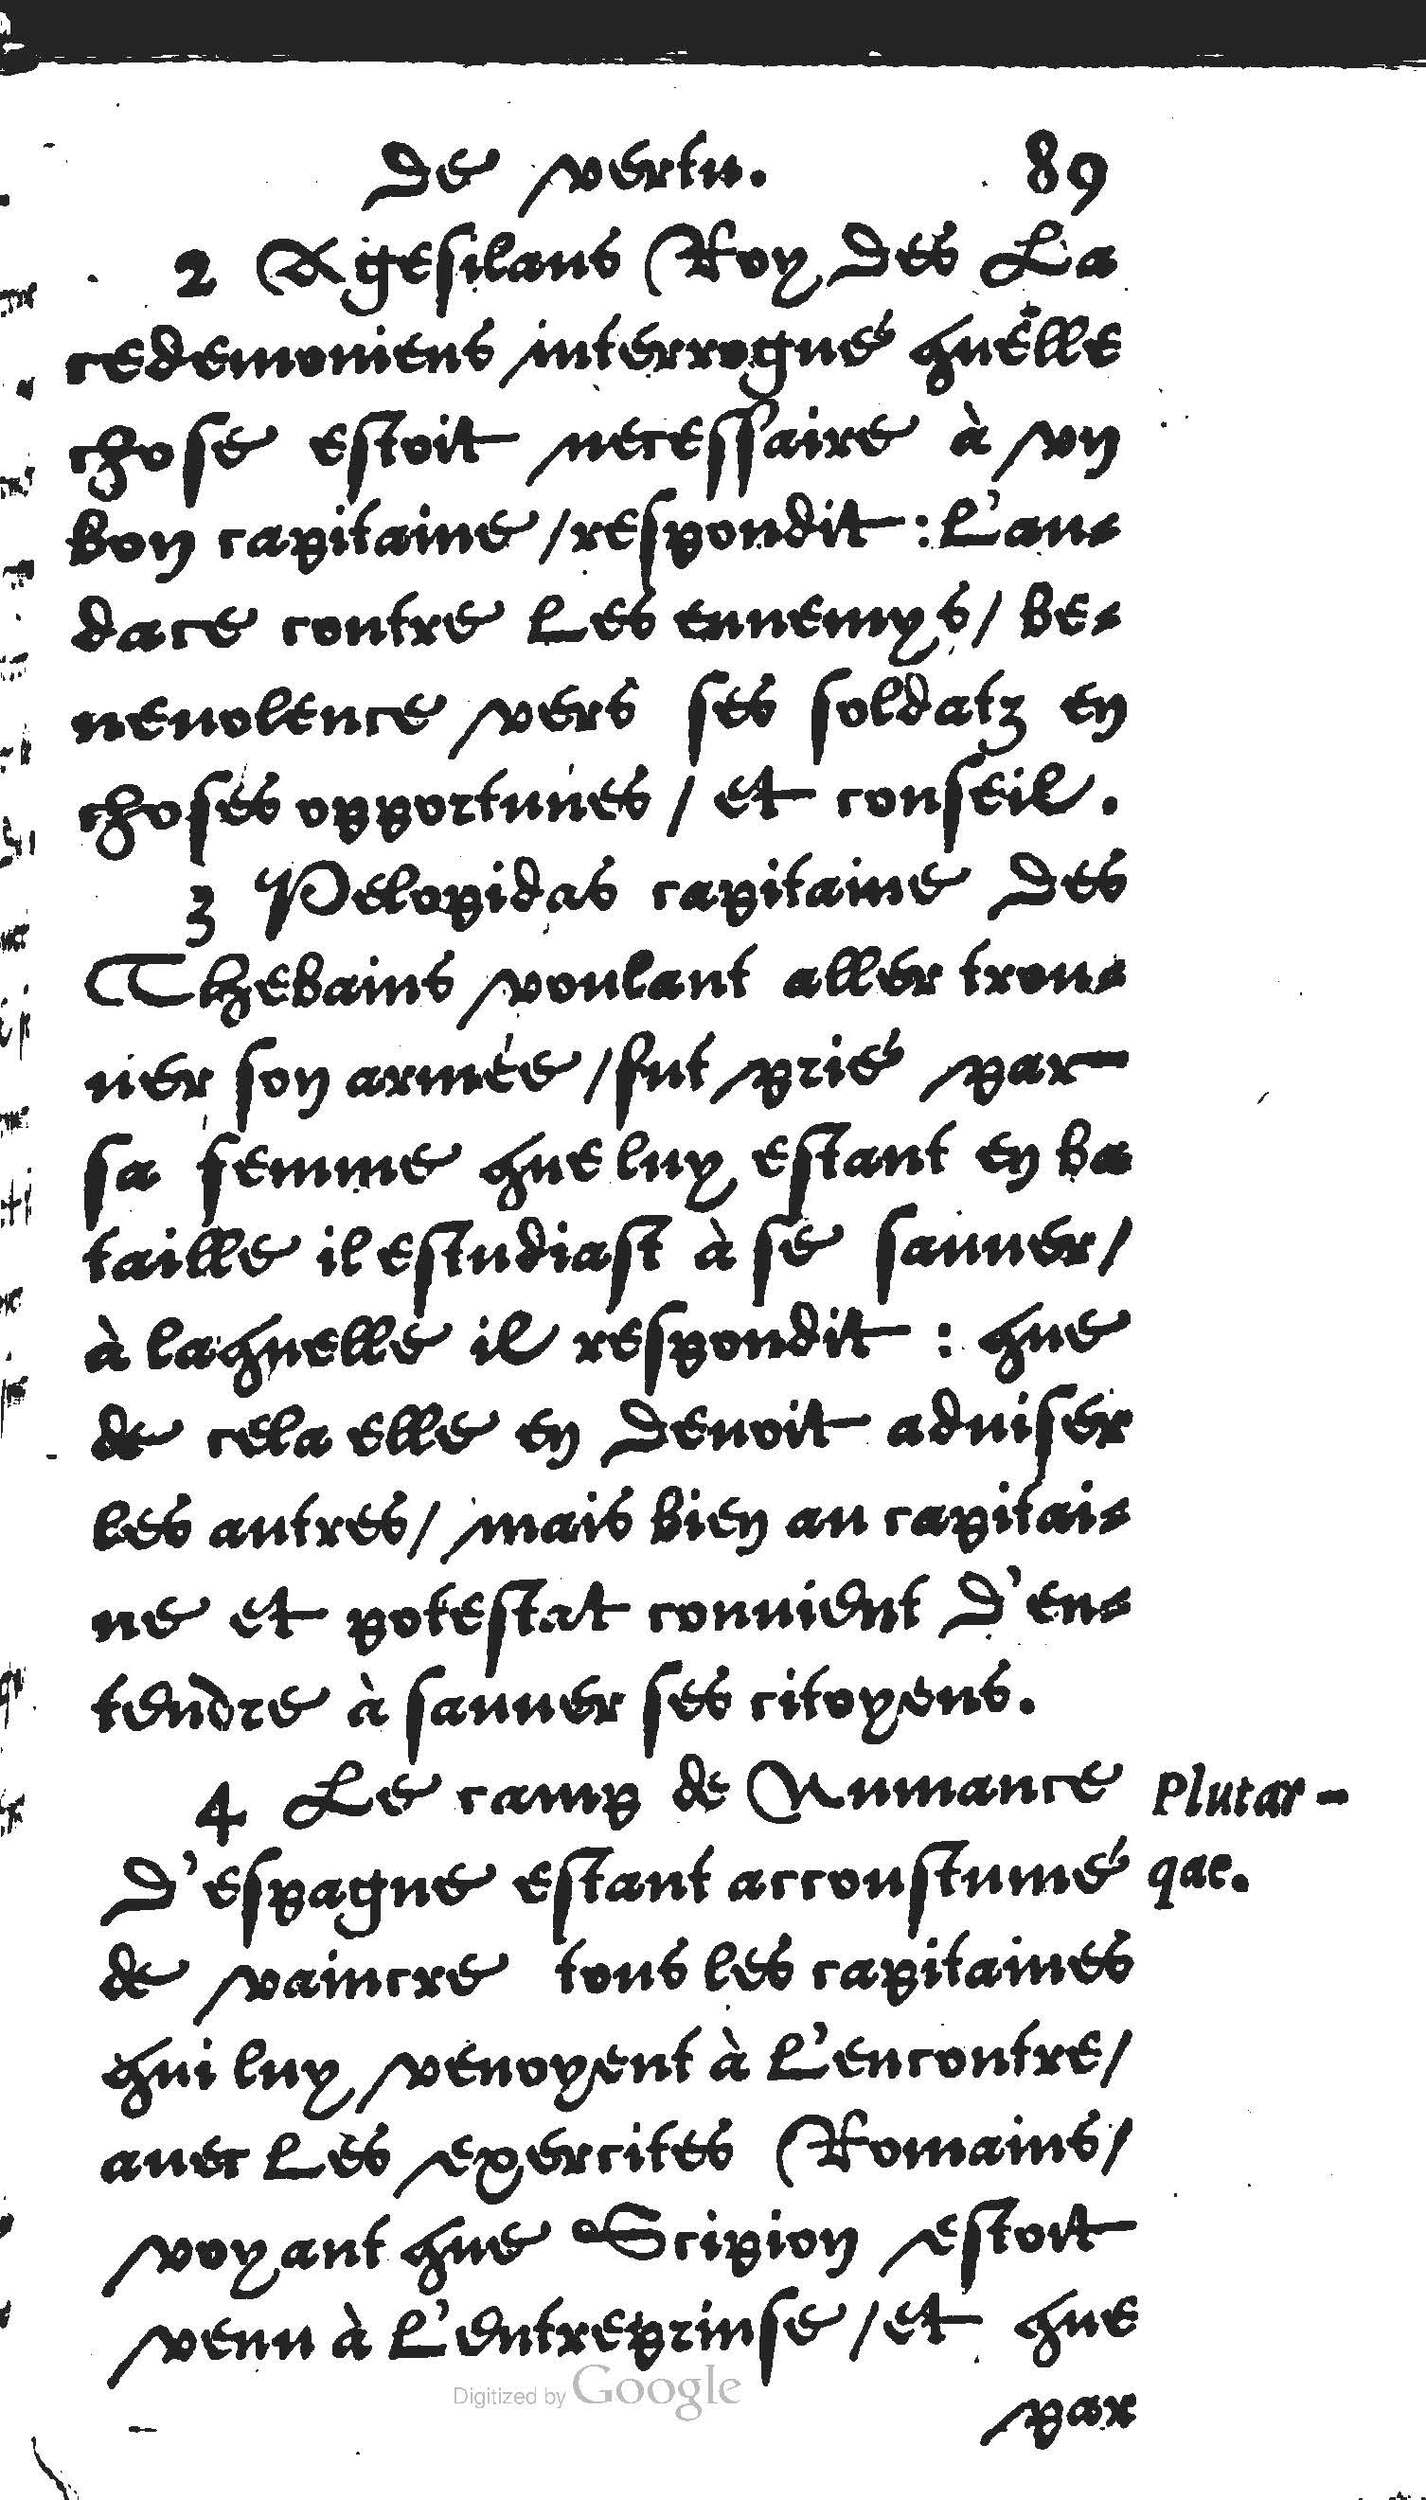 de vertu. 89
2 Agesilaus Roy des La
cedemoniens interrogué quelle
chose estoit necessaire à vn
bon capitaine / respondit : L'au-
dace contre les ennemys / be-
neuolence vers ses soldatz en
choses opportunes / et conseil.
3 Pelopidas capitaine des
Thebains voulant aller trou-
uer son armée / fut prié par
sa femme que luy estant en ba
taille il estudiast à se sauuer /
à laquelle il respondit : que
de cela elle en deuoit aduiser
les autres / mais bien au capitai-
ne et potestat conuient d'en-
tendre à sauuer ses citoyens.
4 Le camp de Numance
d'espagne estant accoustumé
de vaincre tous les capitaines
qui luy venoyent à l'encontre /
auec les exercites Romains /
voyant que Scipion estoit
venu à l'entreprinse / et que
par
Plutar-
que.
Digitized by Google